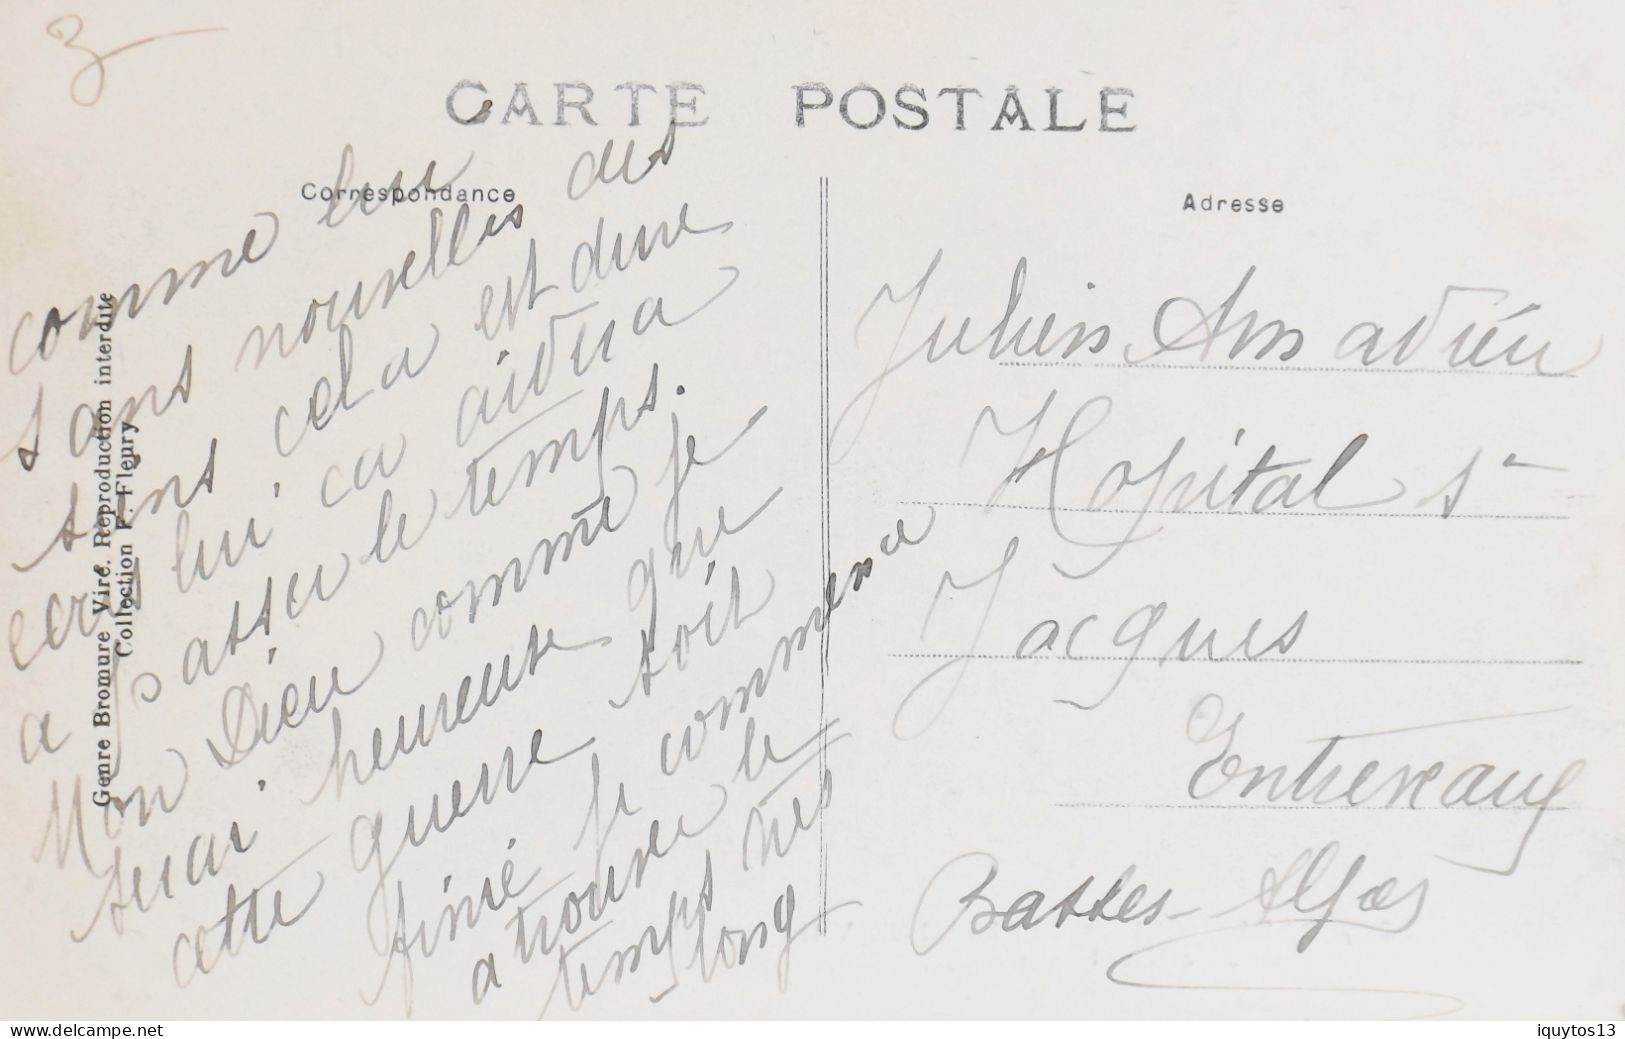 3
CARTE POSTALE
Correspondance
Adresse
comme lui
sans nouvelles des
siens cela est dure
ecris lui ca aidera
a passer le temps.
Mon Dieu comme je
serai heureuse que
cette guerre soit
finie je commence
a trouver le
temps très
long
Julien Amadieu
Hopital St
Jacques
Entrevaux
Basses-Alpes
Genre Bromure Viré. Reproduction interdite
Collection F. Fleury
delcampe.net
iquytos13